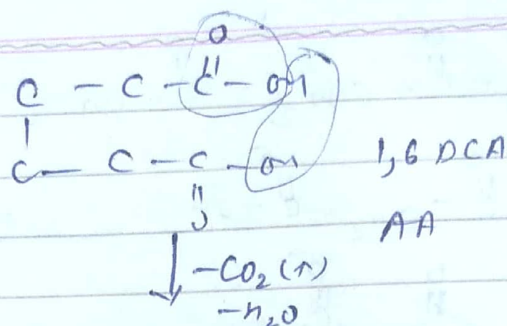 O
||
C - C - C - OH
|
C - C - C - OH 1,6 DCA
||
O AA
↓ -CO₂ (↑)
-H₂O